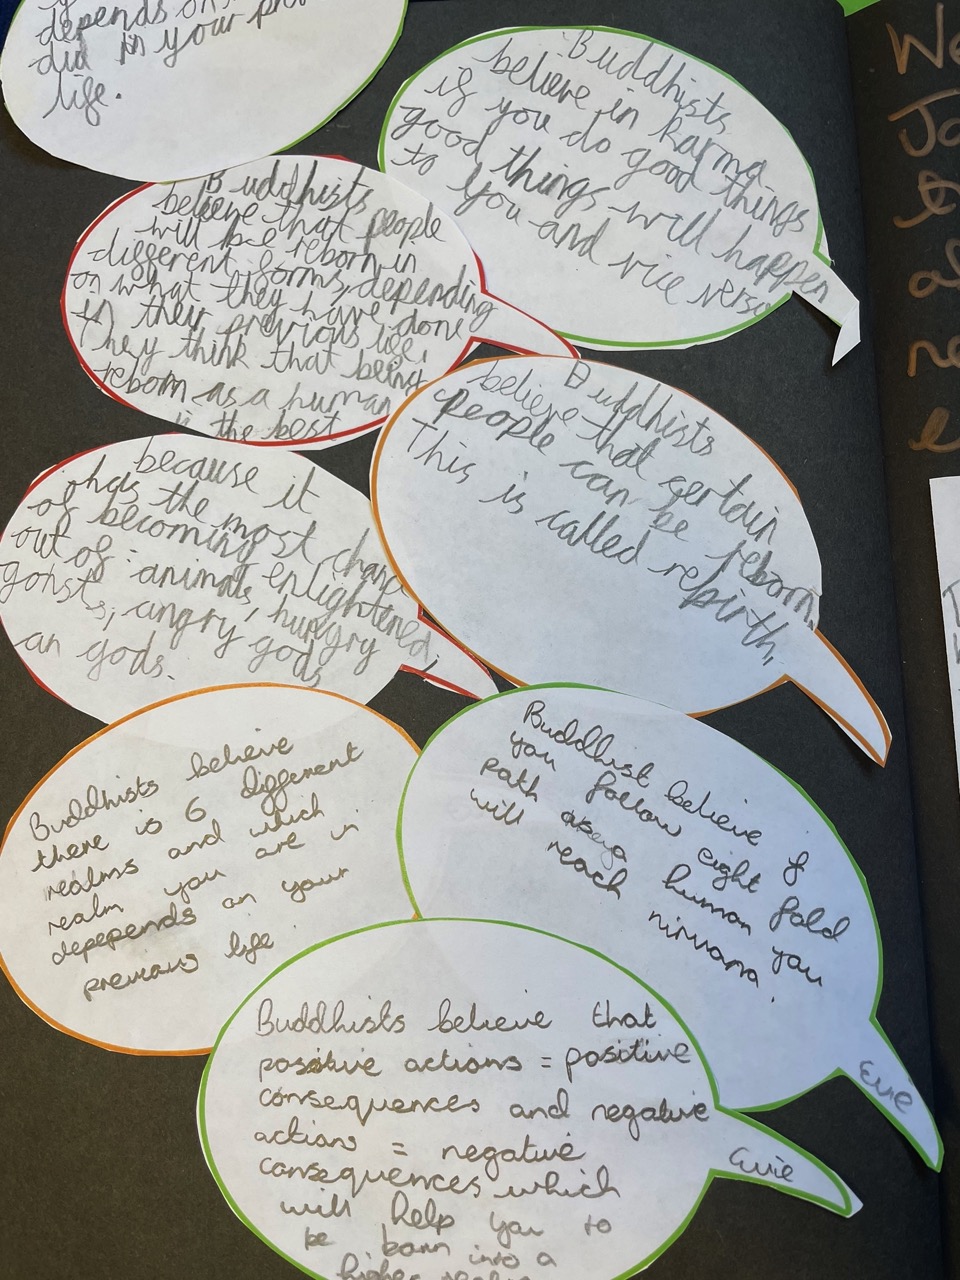 depends on
did in your
life.
Buddhists
believe in Karma
if you do good things
good things will happen
to you and vice versa
Buddhists
believe that people
will be reborn in
different forms, depending
on what they have done
in their previous life.
They think that being
reborn as a human
is the best
because it
has the most chance
of becoming enlightened,
out of: animals, hungry
gohsts, angry gods
an gods.
Buddhists
believe that certain
people can be reborn.
This is called rebirth.
Buddhists believe
there is 6 different
realms and which
realm you are in
depepends on your
previous life.
Buddhist believe if
you follow eight fold
path as a human you
will reach nirvana.
Evie
Buddhists believe that
positive actions = positive
consequences and negative
actions = negative
consequences which
will help you to
be born into a
higher realm
Evie
We